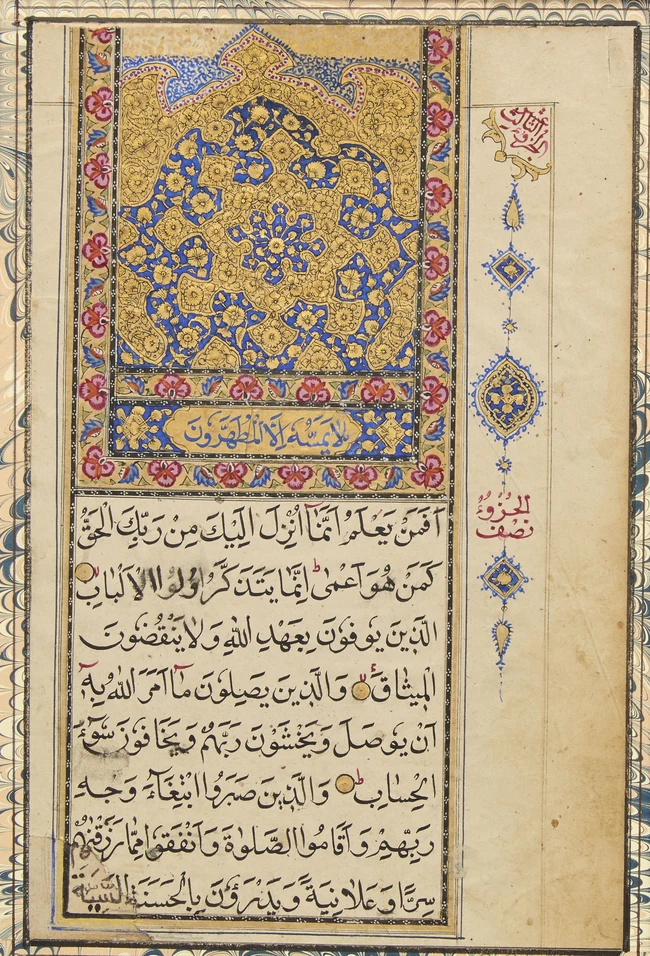 لَا يَمَسُّهُ اِلَّا الْمُطَهَّرُونَ
اَفَمَنْ يَعْلَمُ اَنَّمَٓا اُنْزِلَ اِلَيْكَ مِنْ رَبِّكَ الْحَقُّ
كَمَنْ هُوَ اَعْمٰى ط اِنَّمَا يَتَذَكَّرُ اُولُوا الْاَلْبَابِ
الَّذِينَ يُوفُونَ بِعَهْدِ اللّٰهِ وَلَا يَنْقُضُونَ
الْمِيثَاقَ وَالَّذِينَ يَصِلُونَ مَٓا اَمَرَ اللّٰهُ بِهٖٓ
اَنْ يُوصَلَ وَيَخْشَوْنَ رَبَّهُمْ وَيَخَافُونَ سُٓوءَ
الْحِسَابِ ط وَالَّذِينَ صَبَرُوا ابْتِغَٓاءَ وَجْهِ
رَبِّهِمْ وَاَقَامُوا الصَّلٰوةَ وَاَنْفَقُوا مِمَّا رَزَقْنٰهُمْ
سِرًّا وَعَلَانِيَةً وَيَدْرَؤُنَ بِالْحَسَنَةِ السَّيِّئَةَ
الجزؤ
نصف